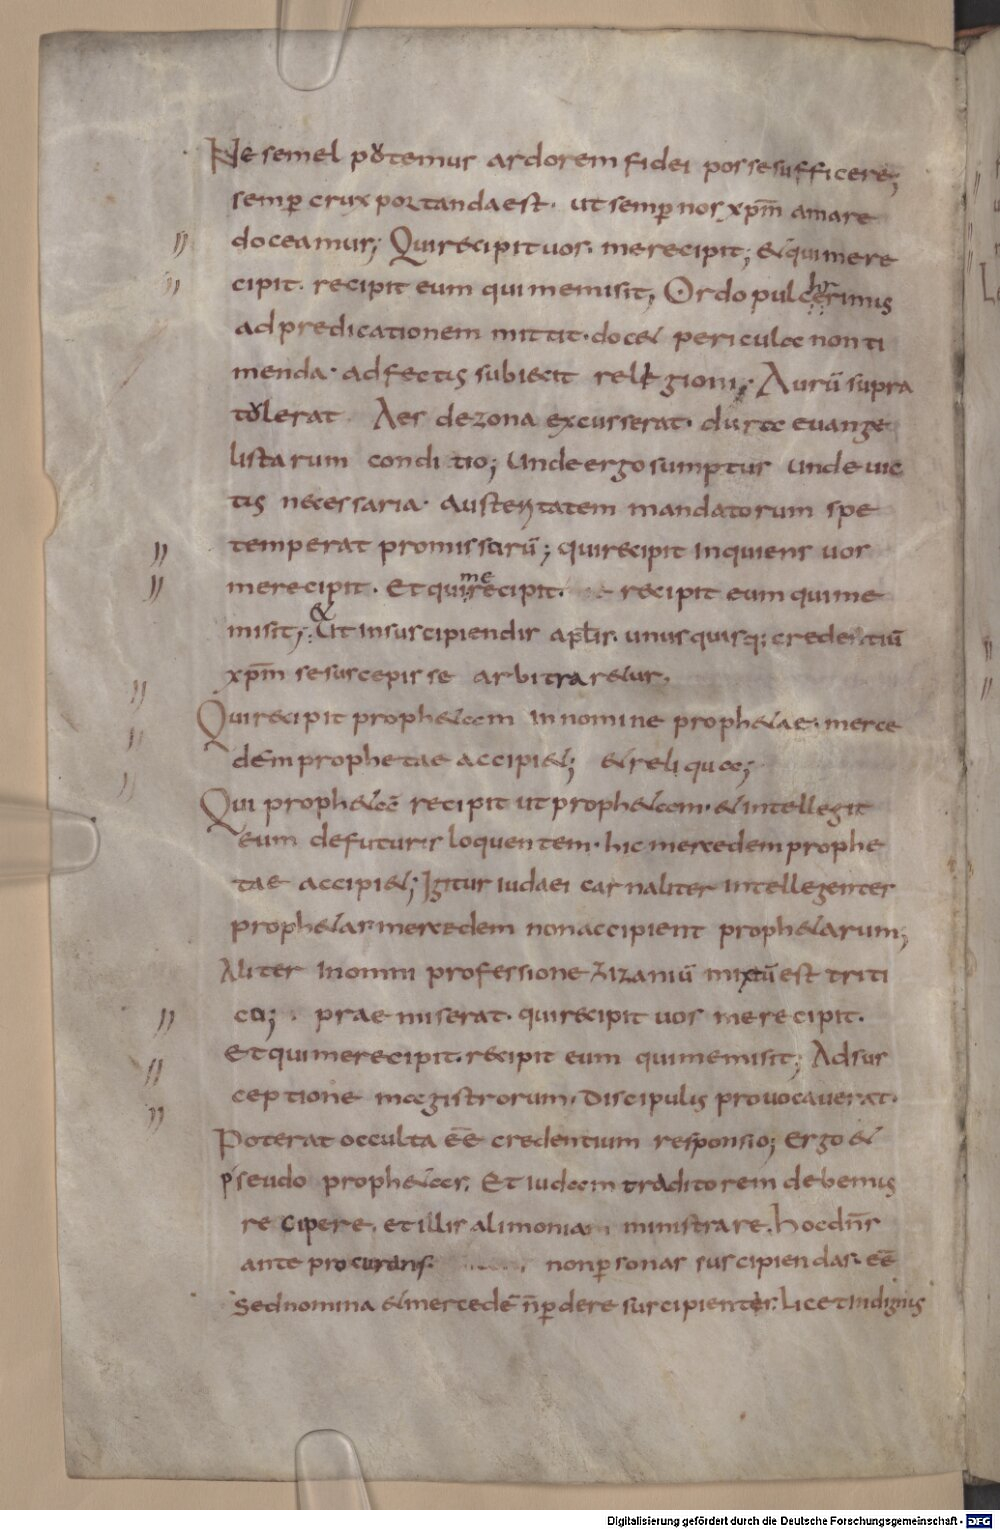 Ne semel potemus ardorem fidei posse sufficere;
semp̄ crux portanda est. ut semp̄ nos xp̄m amare
doceamur; Qui recipit uos. me recipit; et qui me re
cipit. recipit eum qui me misit; Ordo pulcherrimus
ad predicationem mittit. docet pericula non ti
menda. adfectus subiecit relegioni; Aurū supra
tolerat Aes de zona excusserat. dura euange
listarum conditio; Unde ergo sumptus unde uic
tus necessaria. austeritatem mandatorum spe
temperat promissorū; qui recipit inquiens uos
me recipit. Et qui me recipit. recipit eum qui me
misit; & Ut in suscipiendis apl̄is. unusquisq; credentiū
xp̄m se suscepisse arbitraretur.
Qui recipit prophetam in nomine prophetae. merce
dem prophetae accipiet; et reliqua;
Qui prophetā recipit ut prophetam. et intellegit
eum de futuris loquentem. hic mercedem prophe
tae accipiet; Igitur iudaei carnaliter intellegentes
prophetas mercedem non accipient prophetarum;
Aliter In omni professione zizaniū mixtū est triti
co; praemiserat. qui recipit uos me recipit.
Et qui me recipit. recipit eum qui me misit; Ad sus
ceptione magistrorum. Discipulis prouocauerat.
Poterat occulta eē credentium responsio; Ergo et
pseudo prophetas. Et iudam traditorem debemus
recipere. et illis alimonia ministrare. hoc dn̄s
ante procurans. non p̄sonas suscipiendas. eē
Sed nomina et mercedē n̄ p̄dere suscipientes. Licet indignus
Digitalisierung gefördert durch die Deutsche Forschungsgemeinschaft - DFG